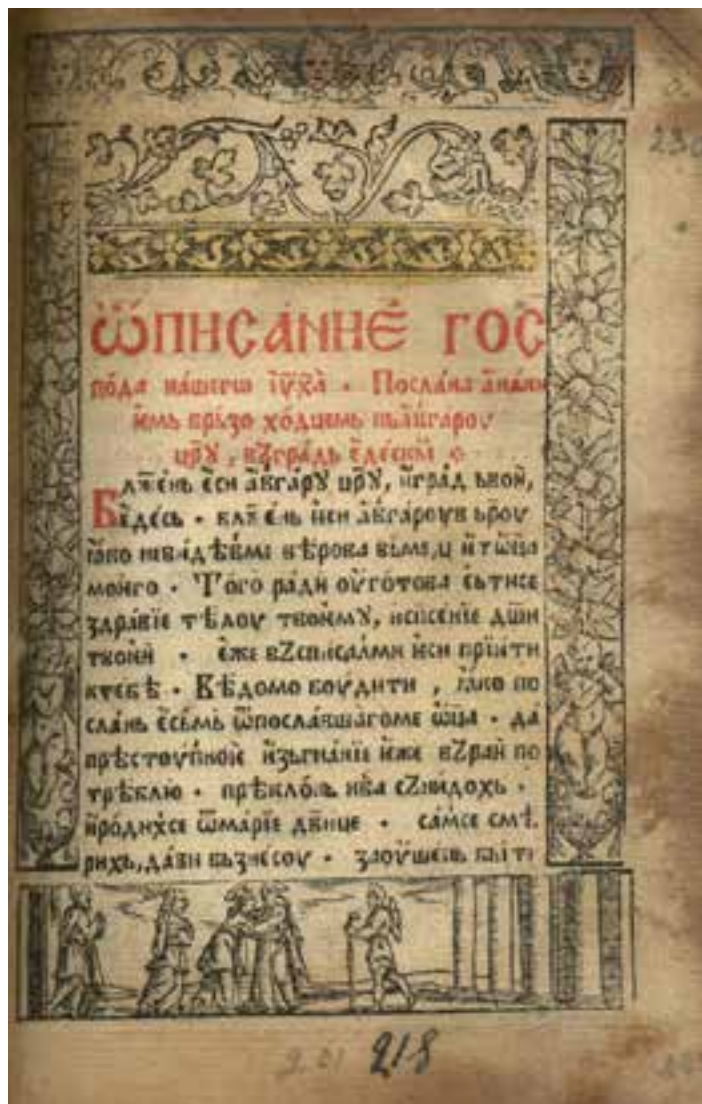 ѾПИСАНИЕ ГОС
пода нашегѡ і҆у҃ха҃ • Послана а҆нани
емь брьзо ходцемь къ а҆вгароу
цр҃у, вꙁградь е҆деси
Бл҃жень е҆си а҆вгару цр҃у, и҆град твои,
е҆десь • бл҃жень и҆си а҆вгароу цр҃оу
ꙗко не видѣвь ме вѣрова вь ме, и҆ ѡ҆ца
моего • Того ради оуготова сьтисе
здравїе тѣлоу твоемꙋ, и спсенїе дш҃и
твоеи • еже вꙁсписа ми и҆си прїити
к тебѣ • Вѣдомо боудити, ꙗко по
слань е҆сьмь ѿ пославшаго ме ѡ҆ца • да
прѣстоупное иꙁ꙽гнанїе иже вꙁраи по
трѣблю • прѣклонь нб҃а сꙁнидохь •
и҆ родихсе ѿ марїе дв҃ице • самсе смѣ
рихь, да ви вьꙁнесоу • ꙁаоушень быти
218